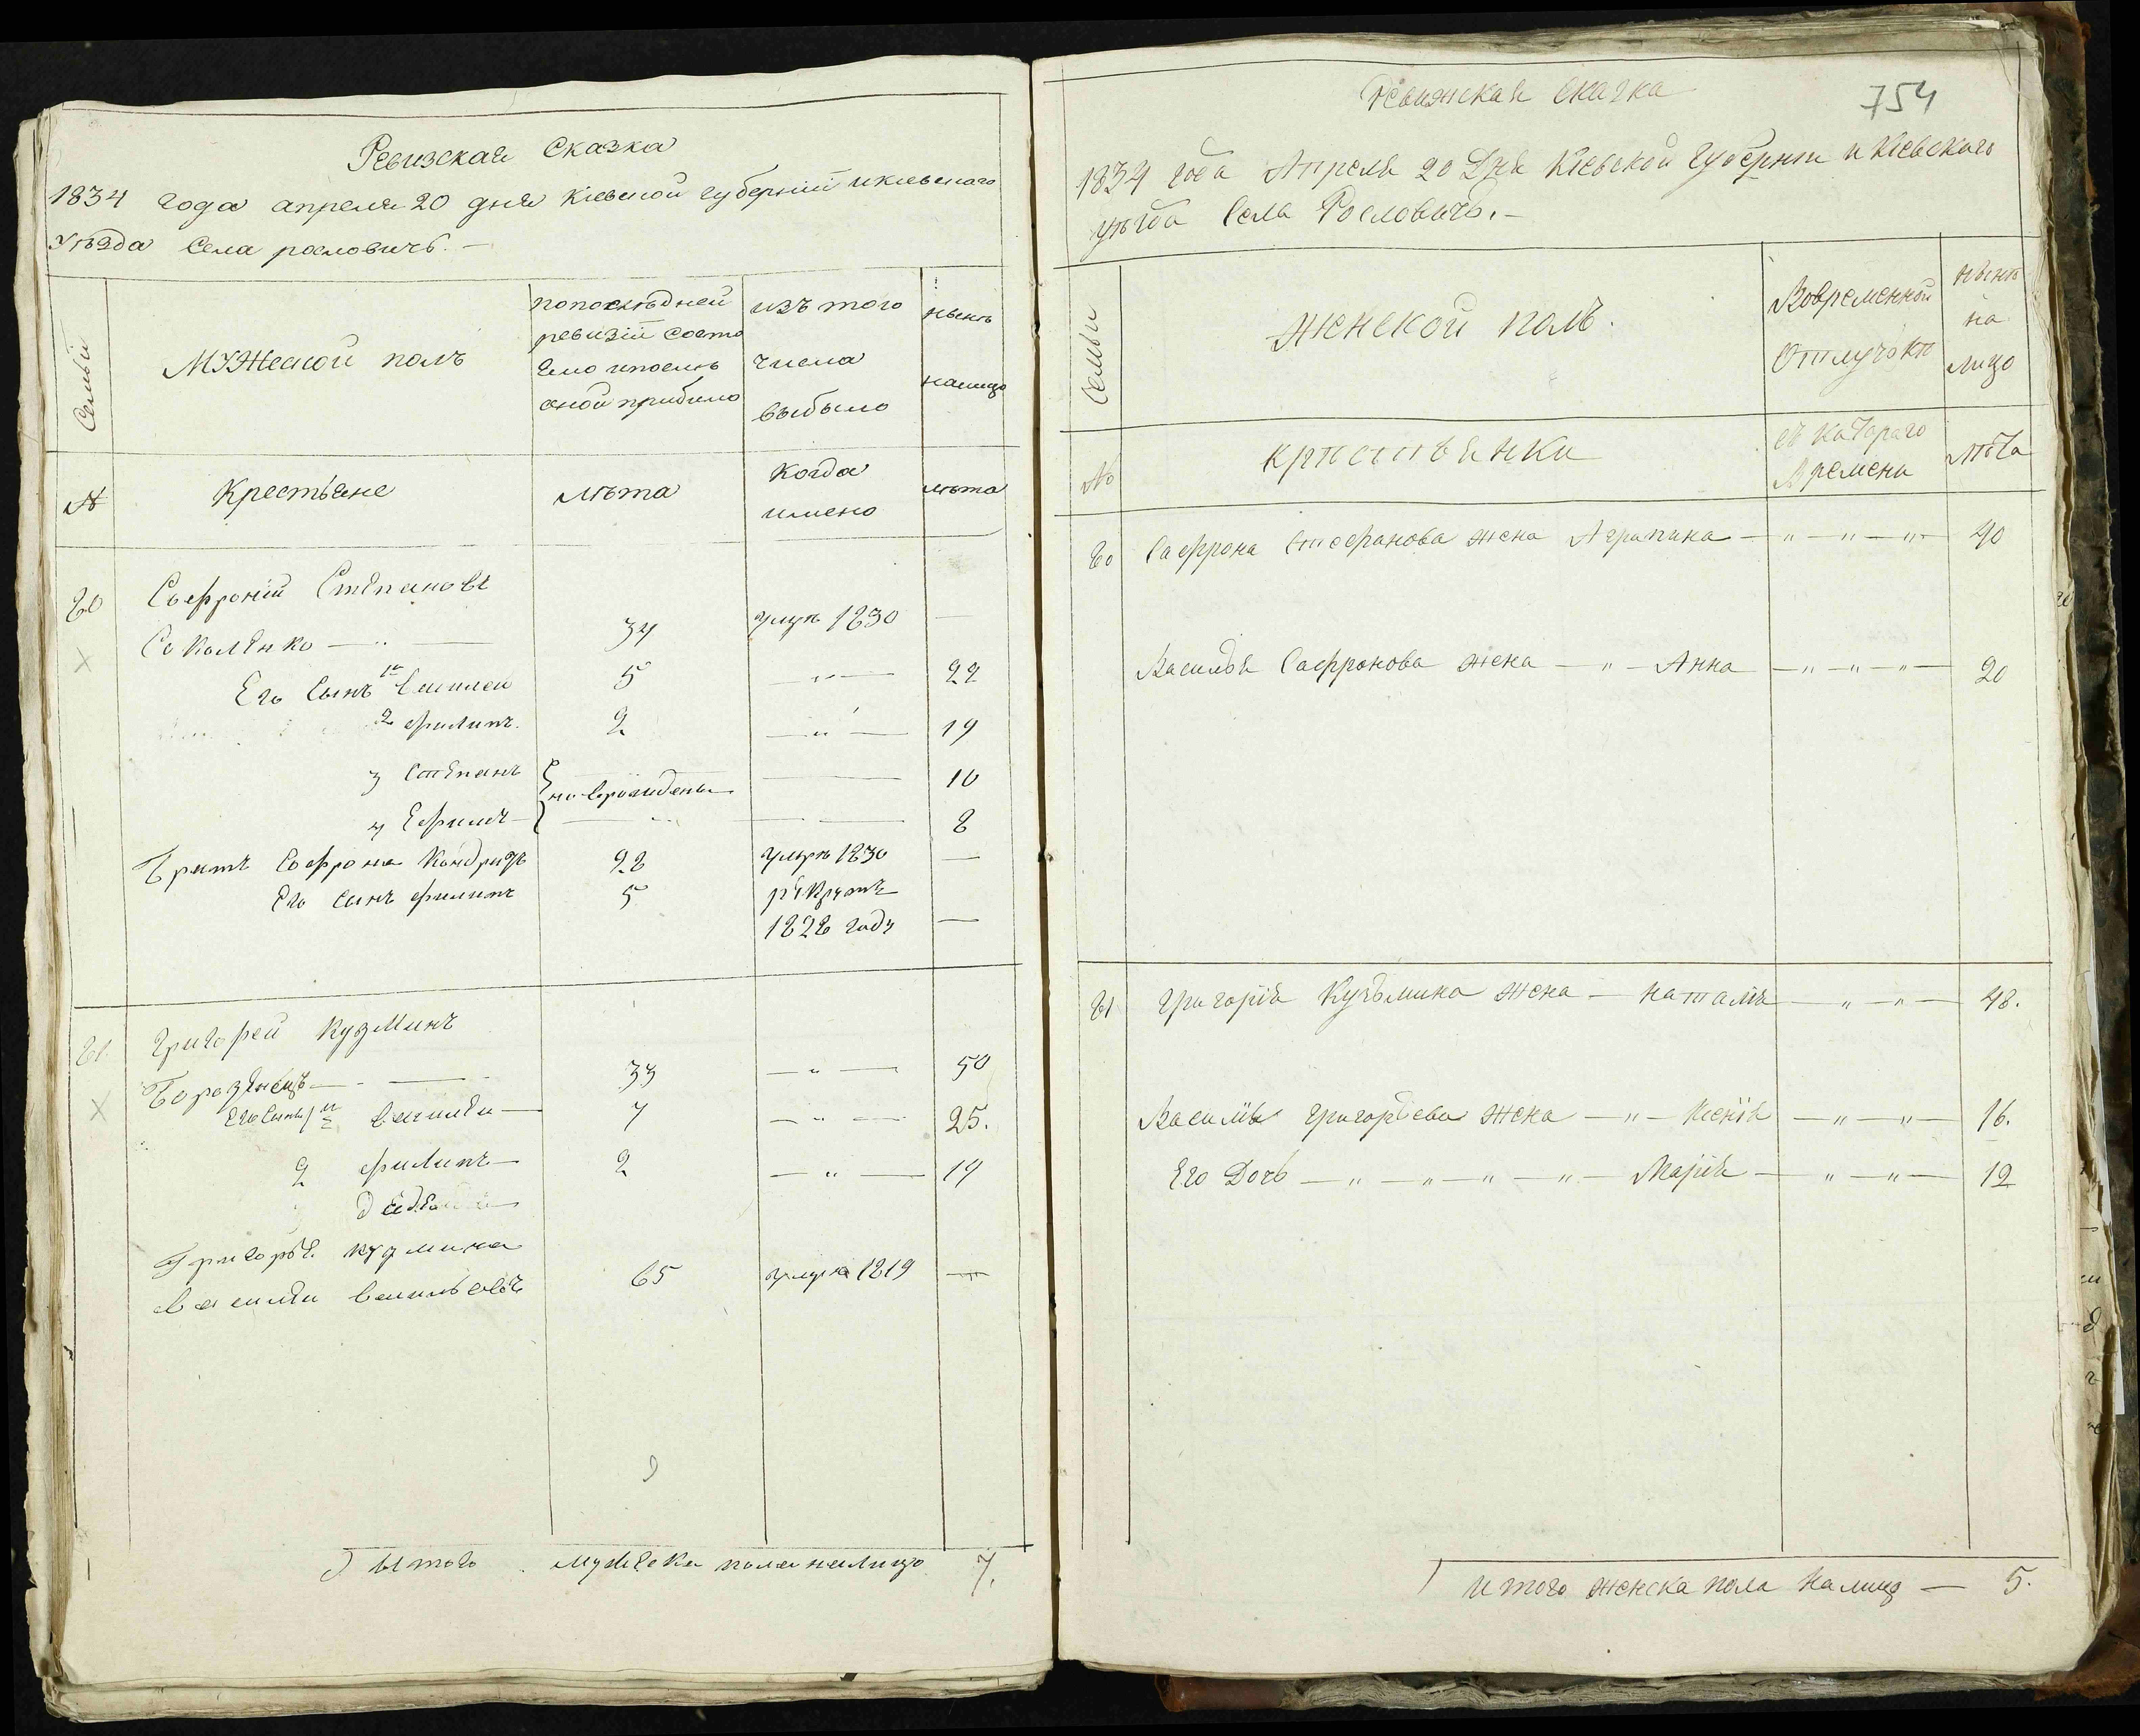 Ревизская Сказка
1834 года апреля 20 дня Кіевской губерніи и кіевскаго
Уѣзда Села рословичъ. —
Семьи
Мужеской полъ
по последней
ревизіи состо
яло и после
оной прибыло
изъ того
числа
выбыло
ныне
налицо
№
Крестьяне
лѣта
когда
имено
лѣта
60 Софроній Степановъ
Соколенко — " — 34 умре 1830 —
Его Сынъ 1й Василей 5 — " — 22
2 филипъ. 2 — " — 19
3 Степанъ новорождены — 10
4 Ефимъ — — " — — 8
Братъ Софрона Кондратъ 28 умре 1830 —
Его Сынъ филипъ 5 рекрутъ
1828 году —
61. Григорей Кузминъ
33 — " — 50
Его Сынъ 1й Василей — 7 — " — 25.
2 филипъ — 2 — " — 19
дядя
Григорья Кузмина
Василей Васильевъ 65 умре 1819 —
Итого мужеска пола налицо 7.
Ревижская сказка
754
1834 года Апреля 20 Дня Кіевской Губерніи и Кіевскаго
уезда Села Рословичъ. —
Семьи
женской полъ.
Вовременной
Отлучки
ныне
на
лицо
№
крестьянки
съ Котораго
Времени
лѣта
60 Сафрона Стефанова жена Аграпина — " — " — " — 40
Василья Сафронова жена — " — Анна — " — " — " — 20
61 Григорія Кузьмина жена — Наталія — " — " — 48.
Василія Григорьева жена — " — Ксенія — " — " — 16.
Его Дочь — " — " — " — " — Марія — " — " — 12
Итого женска пола налицо — 5.